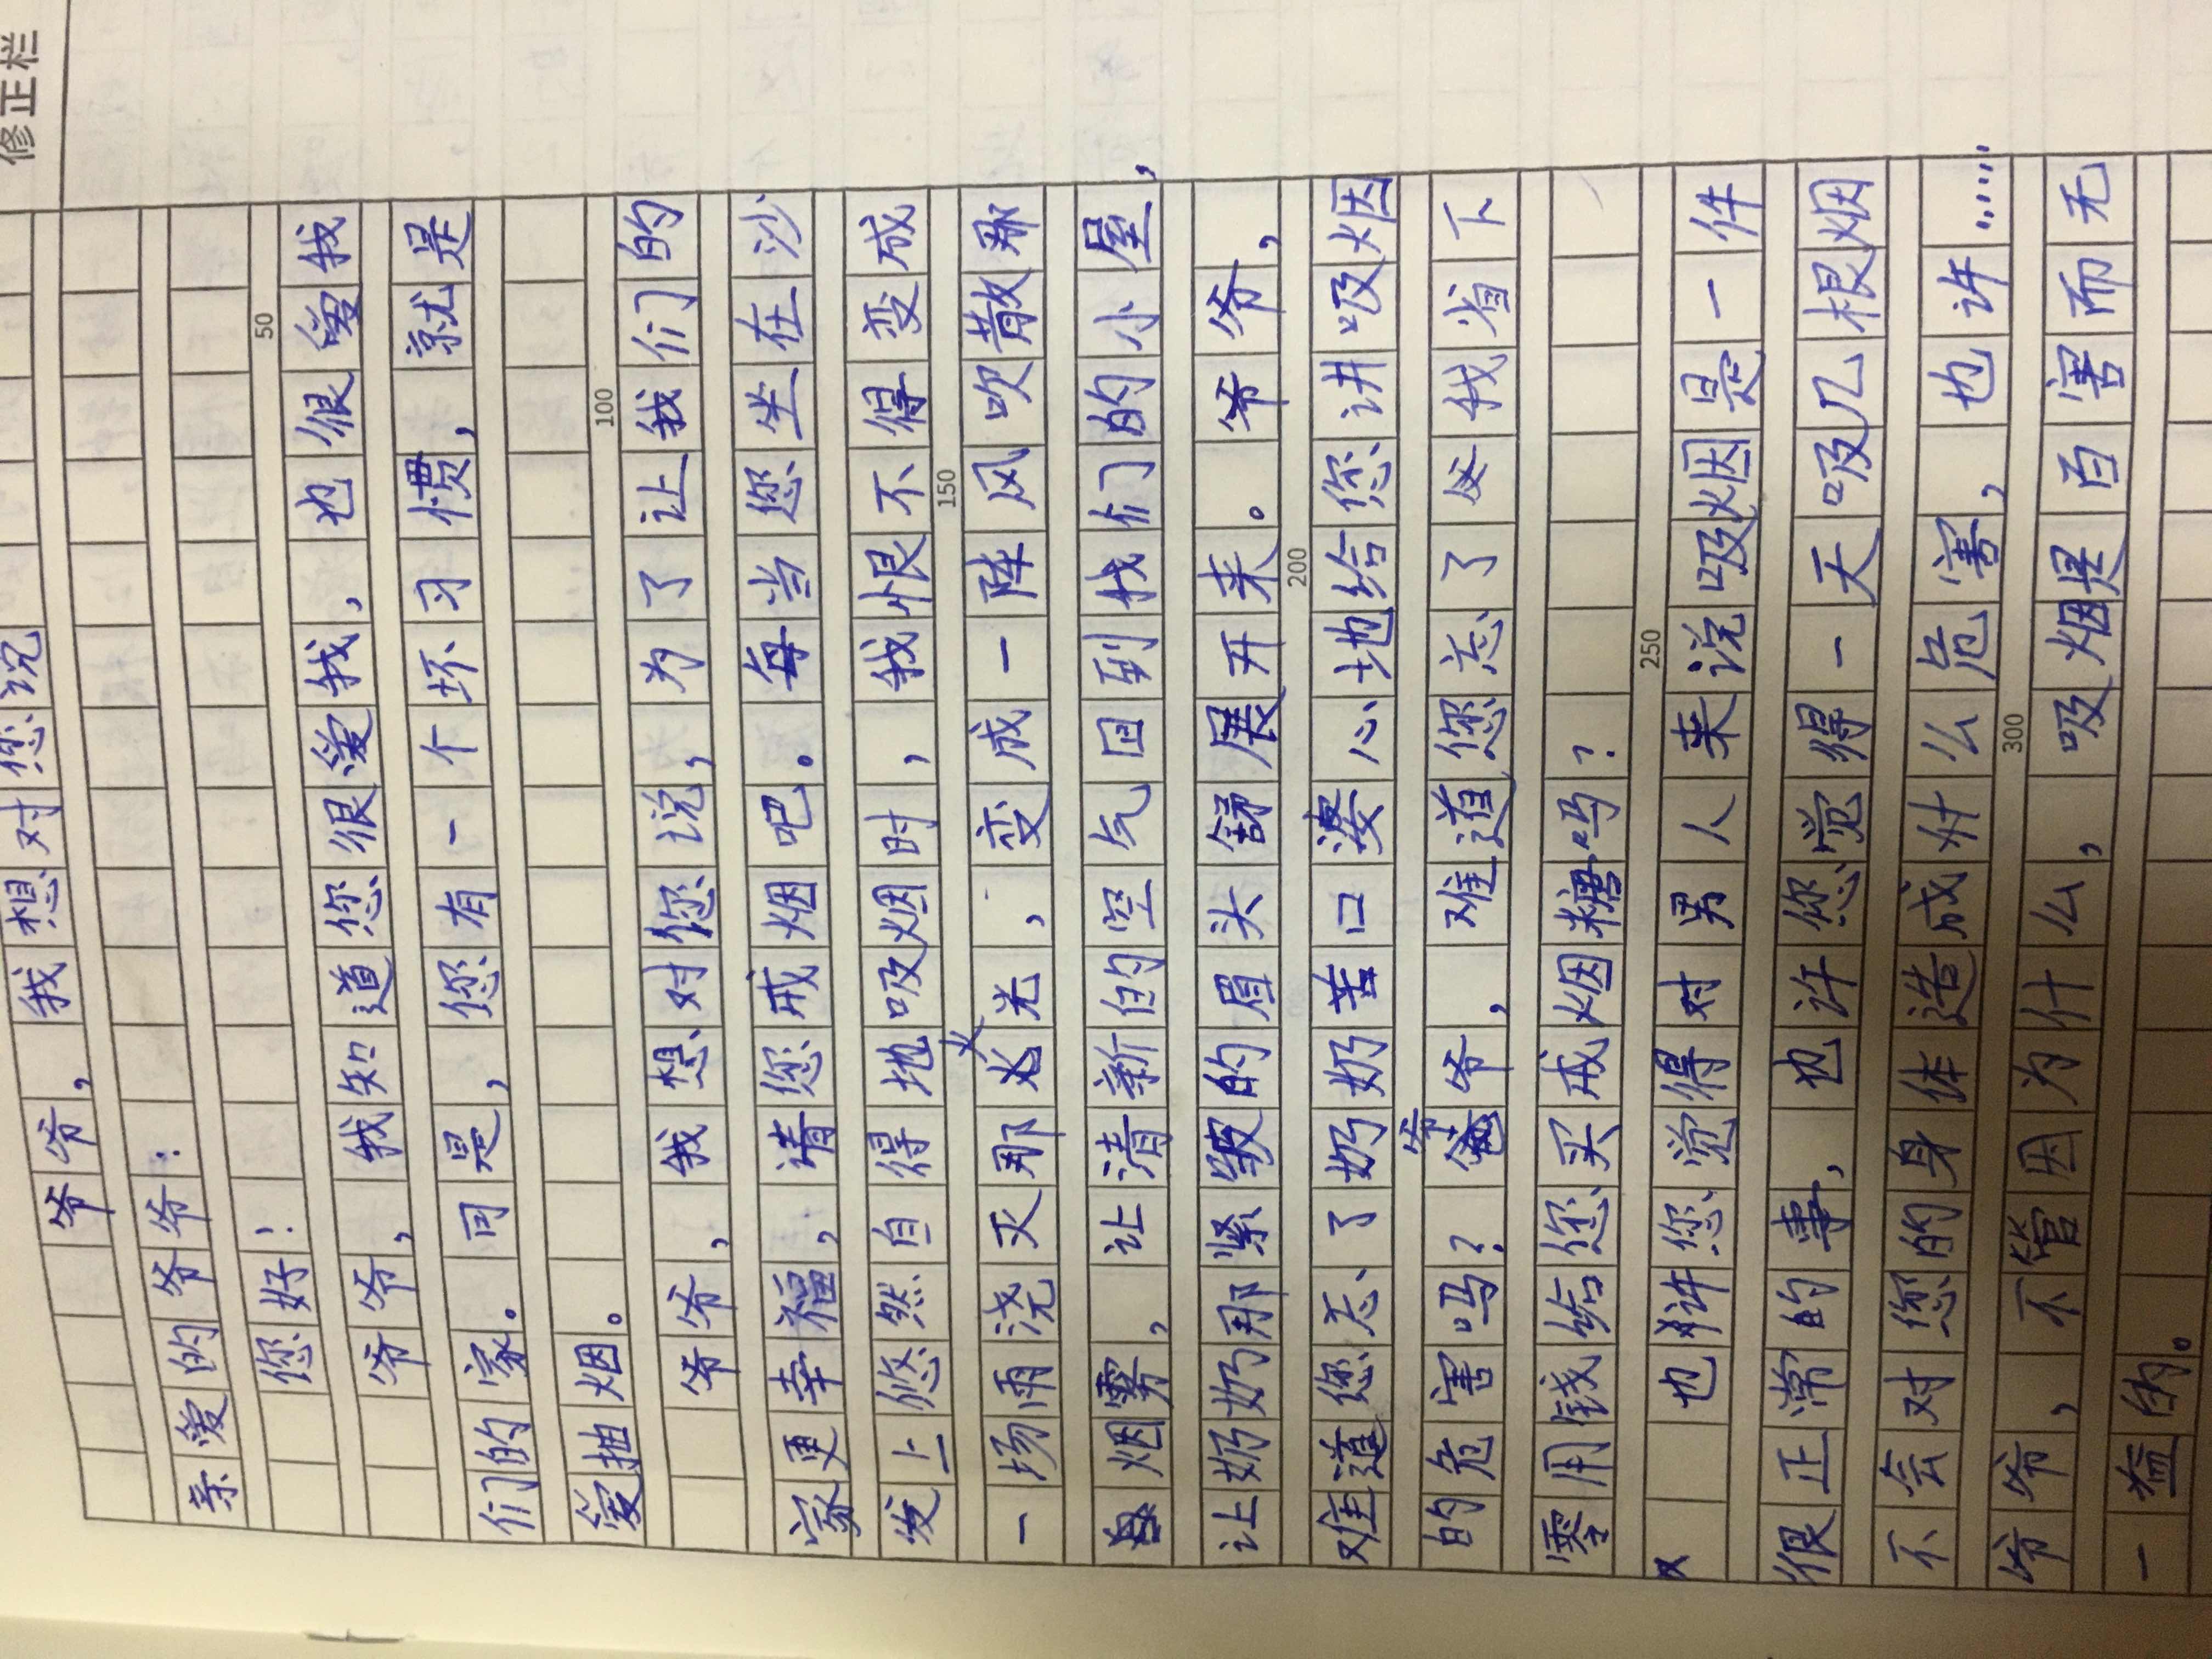 修正栏
爷爷，我想对您说
亲爱的爷爷：
您好！
爷爷，我知道您很爱我，也很爱我
们的家。同是，您有一个坏习惯，就是
爱抽烟。
爷爷，我想对您说，为了让我们的
家更幸福，请您戒烟吧。每当您坐在沙
发上悠然自得地吸烟时，我恨不得变成
一场雨浇灭那火光，变成一阵风吹散那
烟雾，让清新的空气回到我们的小屋，
让奶奶那紧皱的眉头舒展开来。爷爷，
难道您忘了奶奶苦口婆心地给您讲吸烟
的危害吗？爷爷，难道您忘了我省下
零用钱给您买戒烟糖吗？
也许您觉得对男人来说吸烟是一件
很正常的事，也许您觉得一天吸几根烟
不会对您的身体造成什么危害，也许……
爷爷，不管因为什么，吸烟是百害而无
一益的。
50
100
150
200
250
300